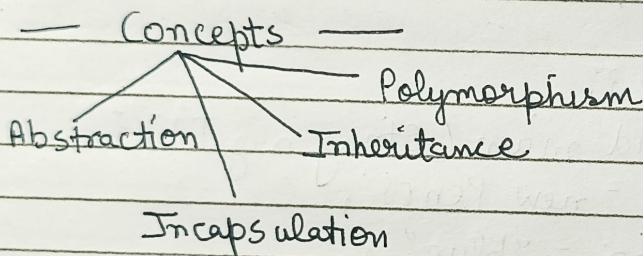 — Concepts —
Polymorphism
Abstraction
Inheritance
Incapsulation